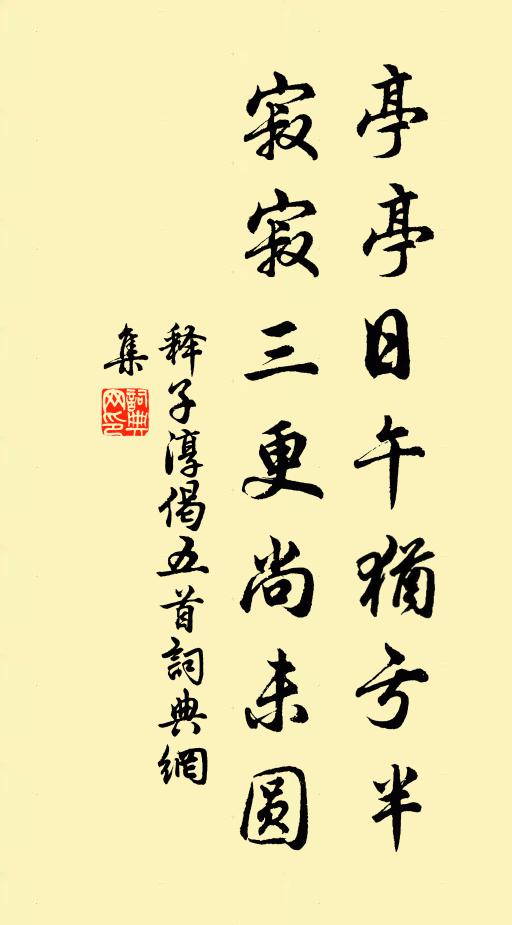 亭亭日午猶亏半
寂寂三更尚未圆
释子淳偈五首詞典網
集
詞典
网印